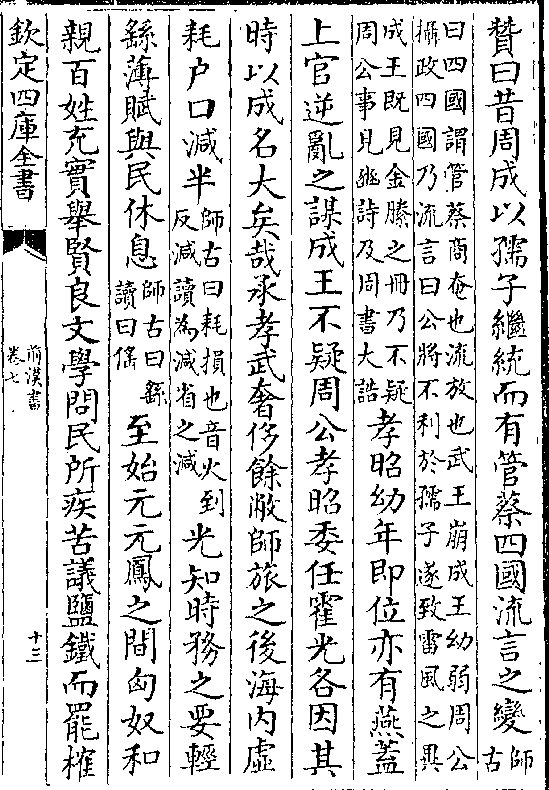 贊曰昔周成以孺子繼統而有管蔡四國流言之變師古
曰四國謂管蔡商奄也流放也武王崩成王幼弱周公
攝政四國乃流言曰公將不利於孺子遂致雷風之異
成王既見金縢之冊乃不疑
周公事見豳詩及周書大誥
孝昭幼年即位亦有燕蓋
上官逆亂之謀成王不疑周公孝昭委任霍光各因其
時以成名大矣哉承孝武奢侈餘敝師旅之後海内虛
耗户口減半
師古曰耗損也音火到
反減讀為減省之減
光知時務之要輕
繇薄賦與民休息
師古曰繇
讀曰傜
至始元元鳳之間匈奴和
親百姓充實舉賢良文學問民所疾苦議鹽鐵而罷榷
欽定四庫全書
前漢書
卷七
十三